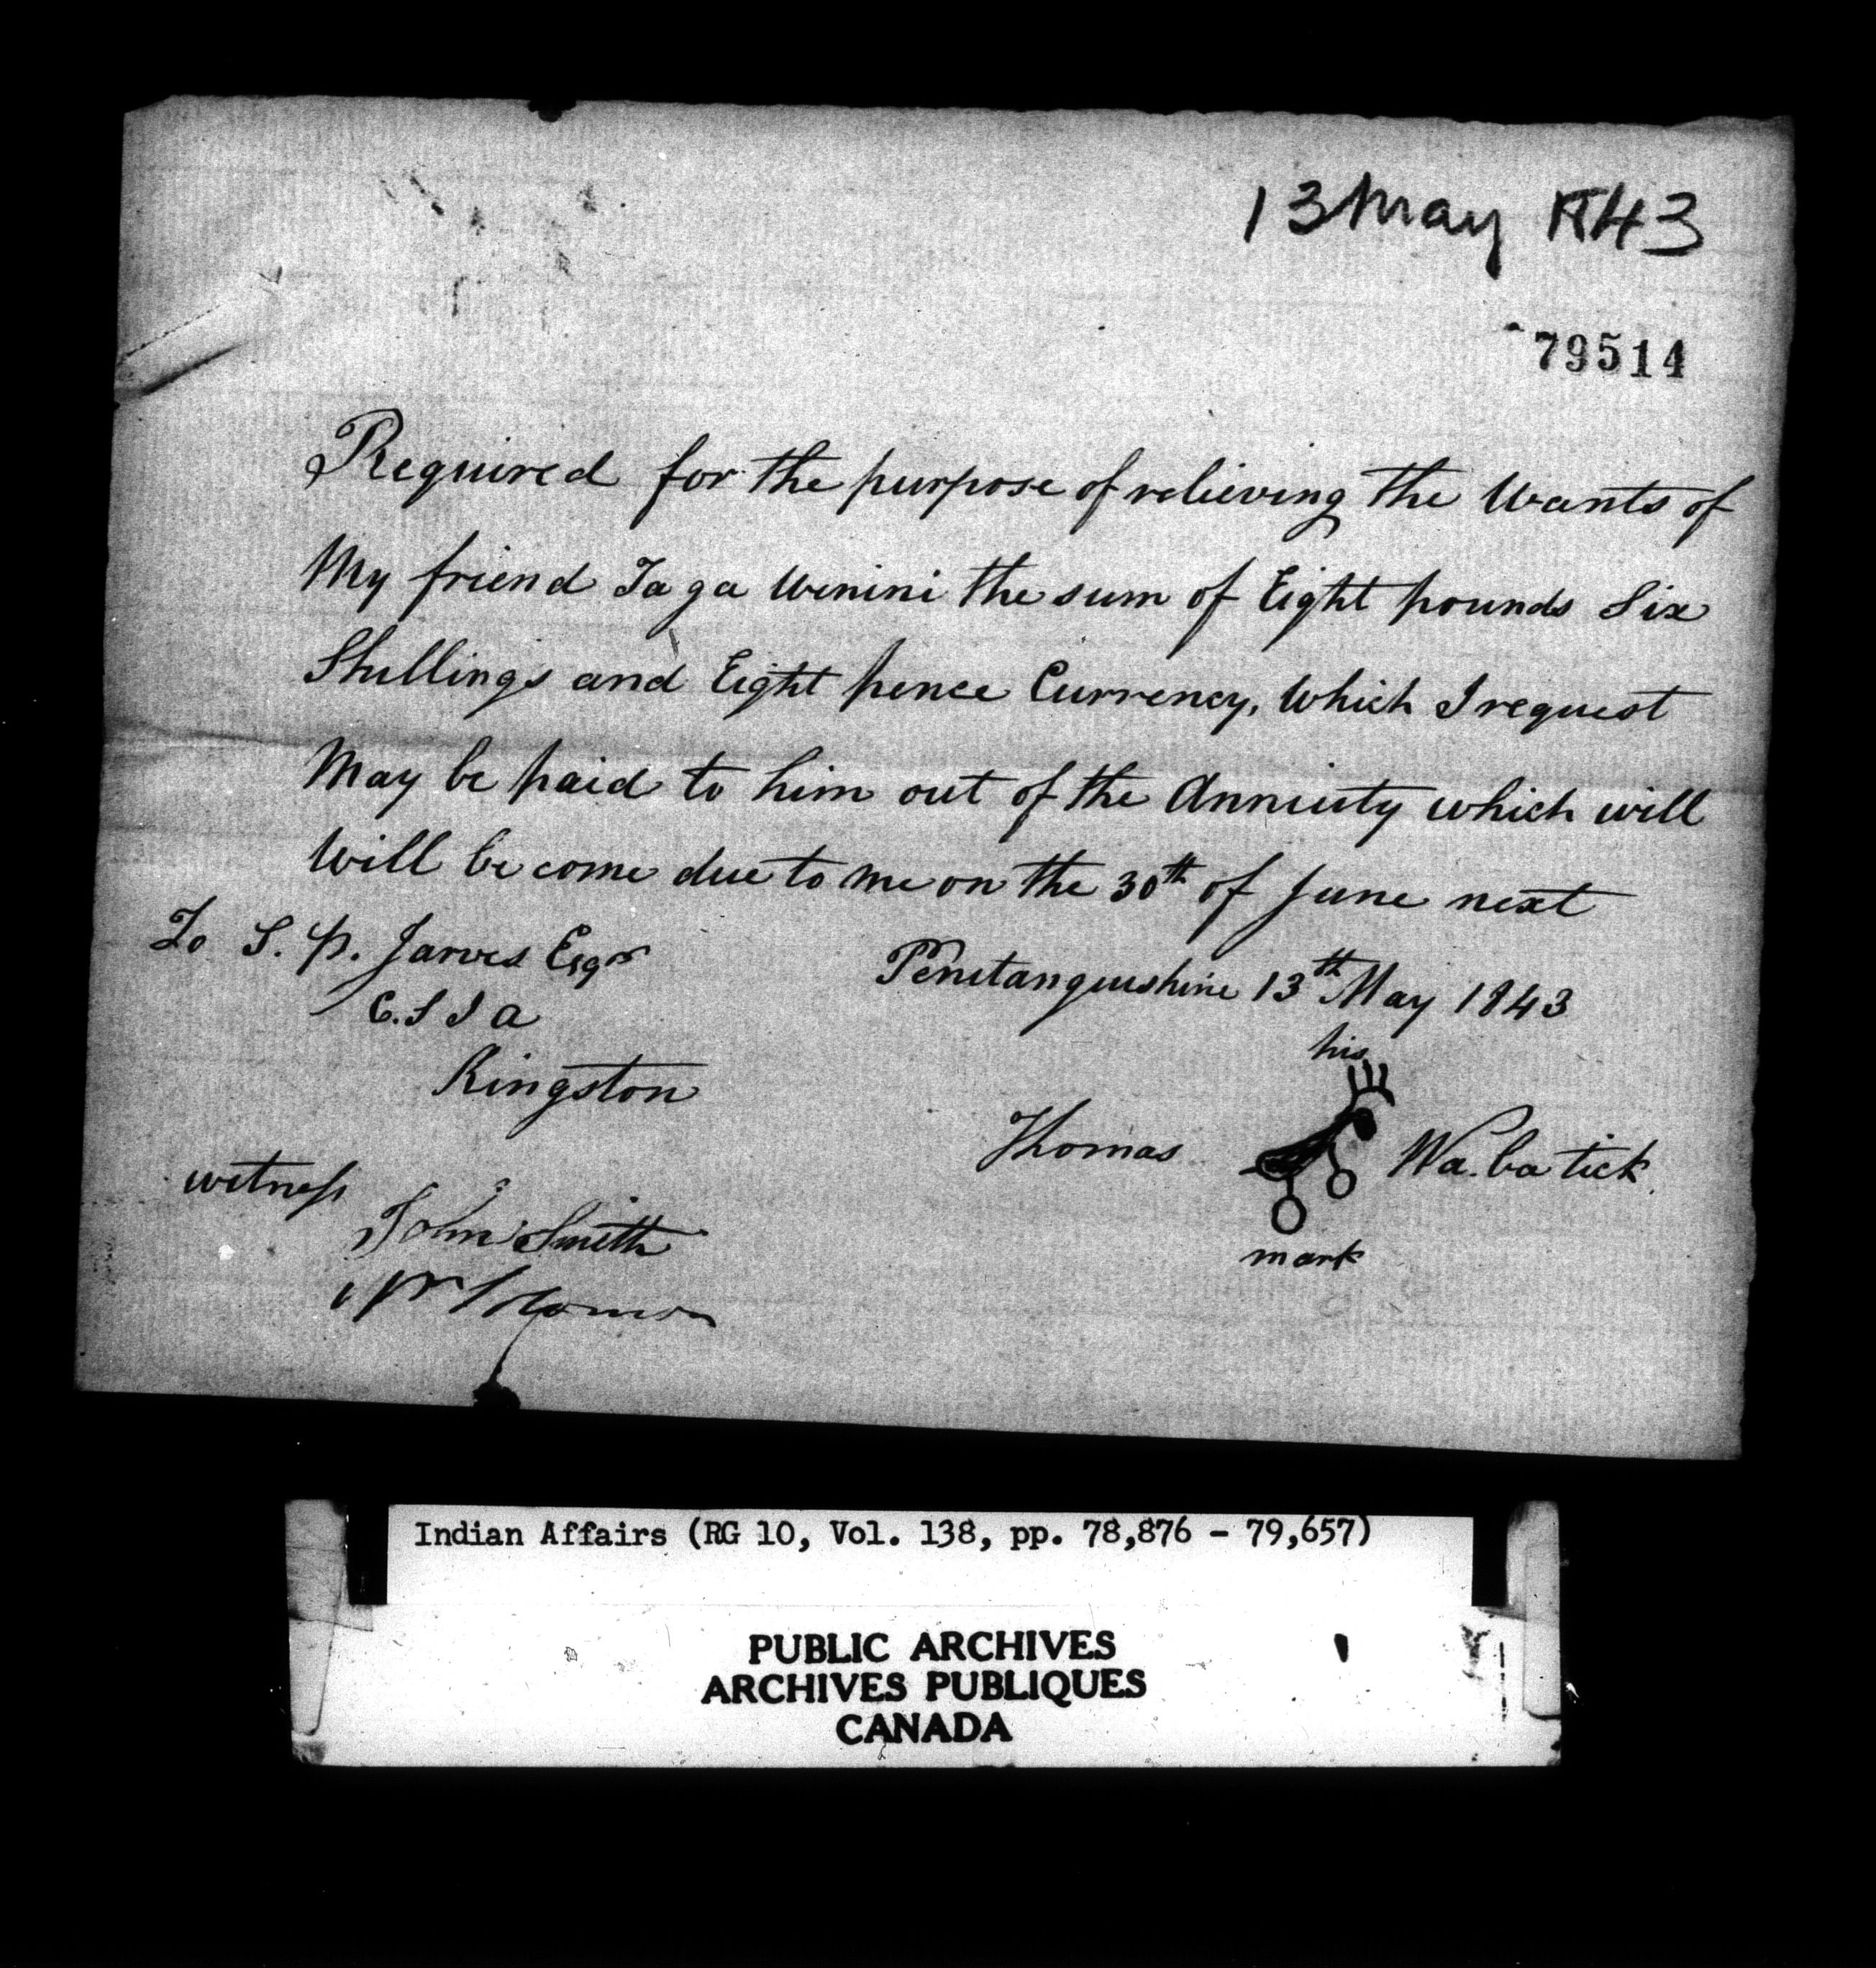 13 May 1843
79514
Required for the purpose of relieving the Wants of
My friend Taga Winini the sum of Eight pounds Six
Shillings and Eight pence Currency, Which I request
May be paid to him out of the Annuity which will
Will become due to me on the 30th of June next
To S. P. Jarvis Esqr
C. S I A
Kingston
Penetanguishine 13th May 1843
his
Thomas Wa.ba tick
mark
witness
John Smith
Wm Solomon
Indian Affairs (RG 10, Vol. 138, pp. 78,876 - 79,657)
PUBLIC ARCHIVES
ARCHIVES PUBLIQUES
CANADA